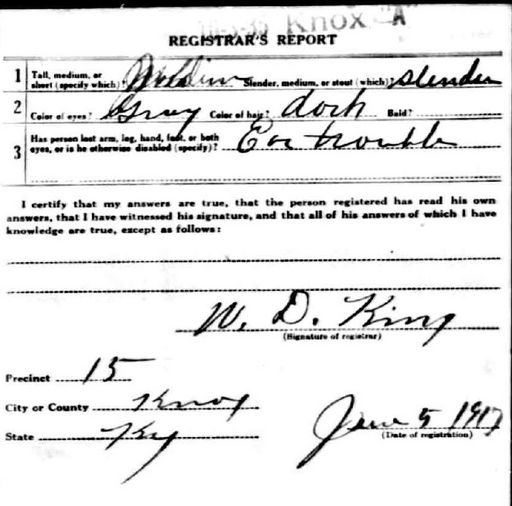 Knox "A"
REGISTRAR'S REPORT
1 Tall, medium, or short (specify which)? Medium Slender, medium, or stout (which)? slender
2 Color of eyes? Gray Color of hair? dark Bald?
3 Has person lost arm, leg, hand, foot, or both eyes, or is he otherwise disabled (specify)? Ear trouble
I certify that my answers are true, that the person registered has read his own
answers, that I have witnessed his signature, and that all of his answers of which I have
knowledge are true, except as follows:
W. D. King
(Signature of registrar)
Precinct 15
City or County Knox
State Ky
June 5 1917
(Date of registration)